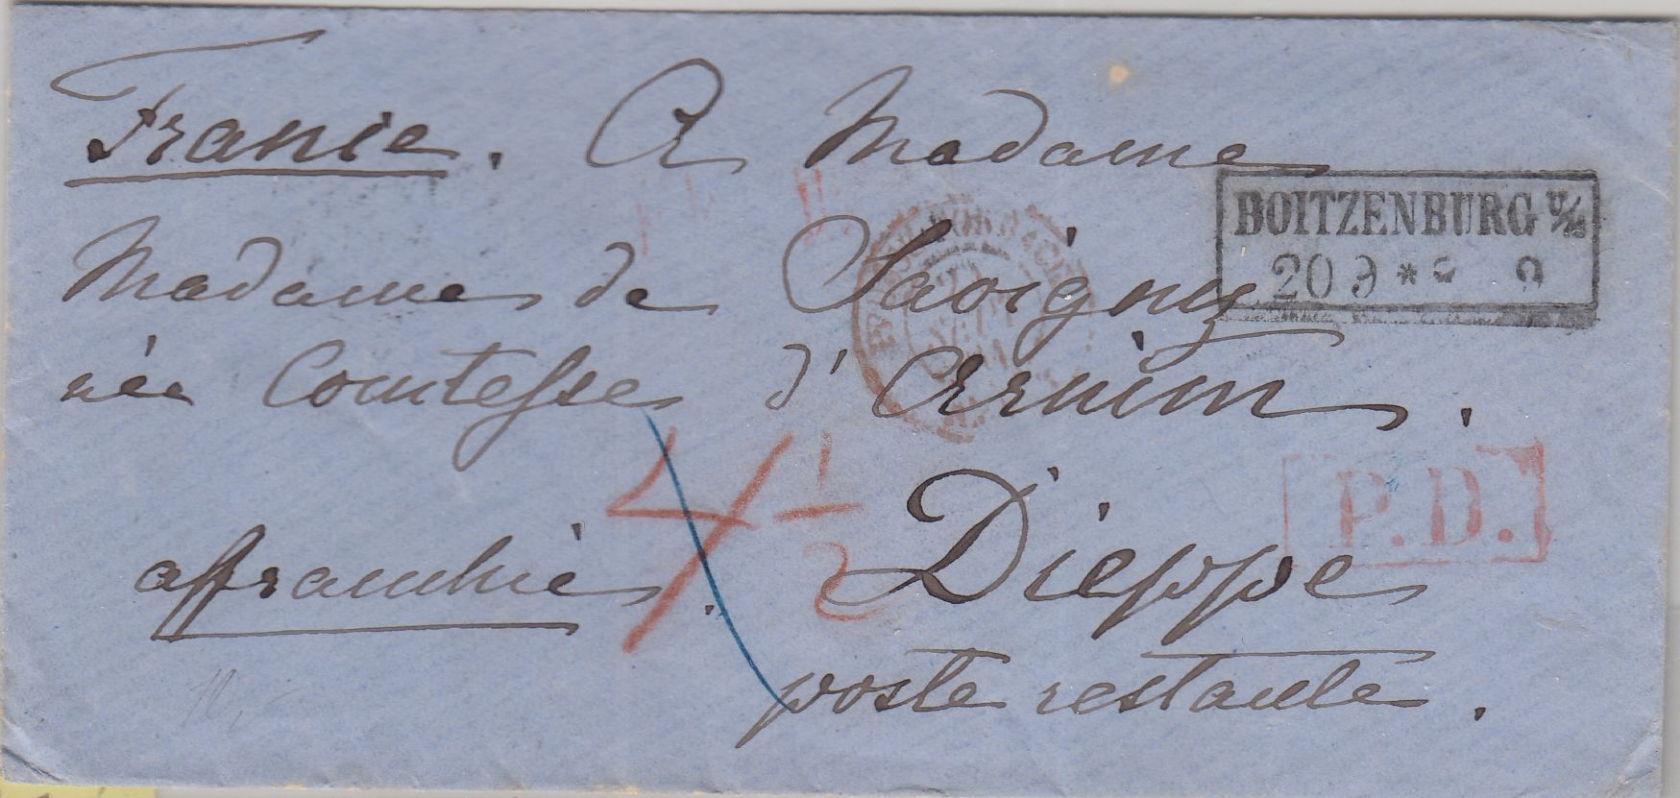 France. A Madame
Madame de Savigny
née Comtesse d'Arnim.
Dieppe
affranchie.
poste restante.
4 1/2
BOITZENBURG U/M
20 9 *
P.D.